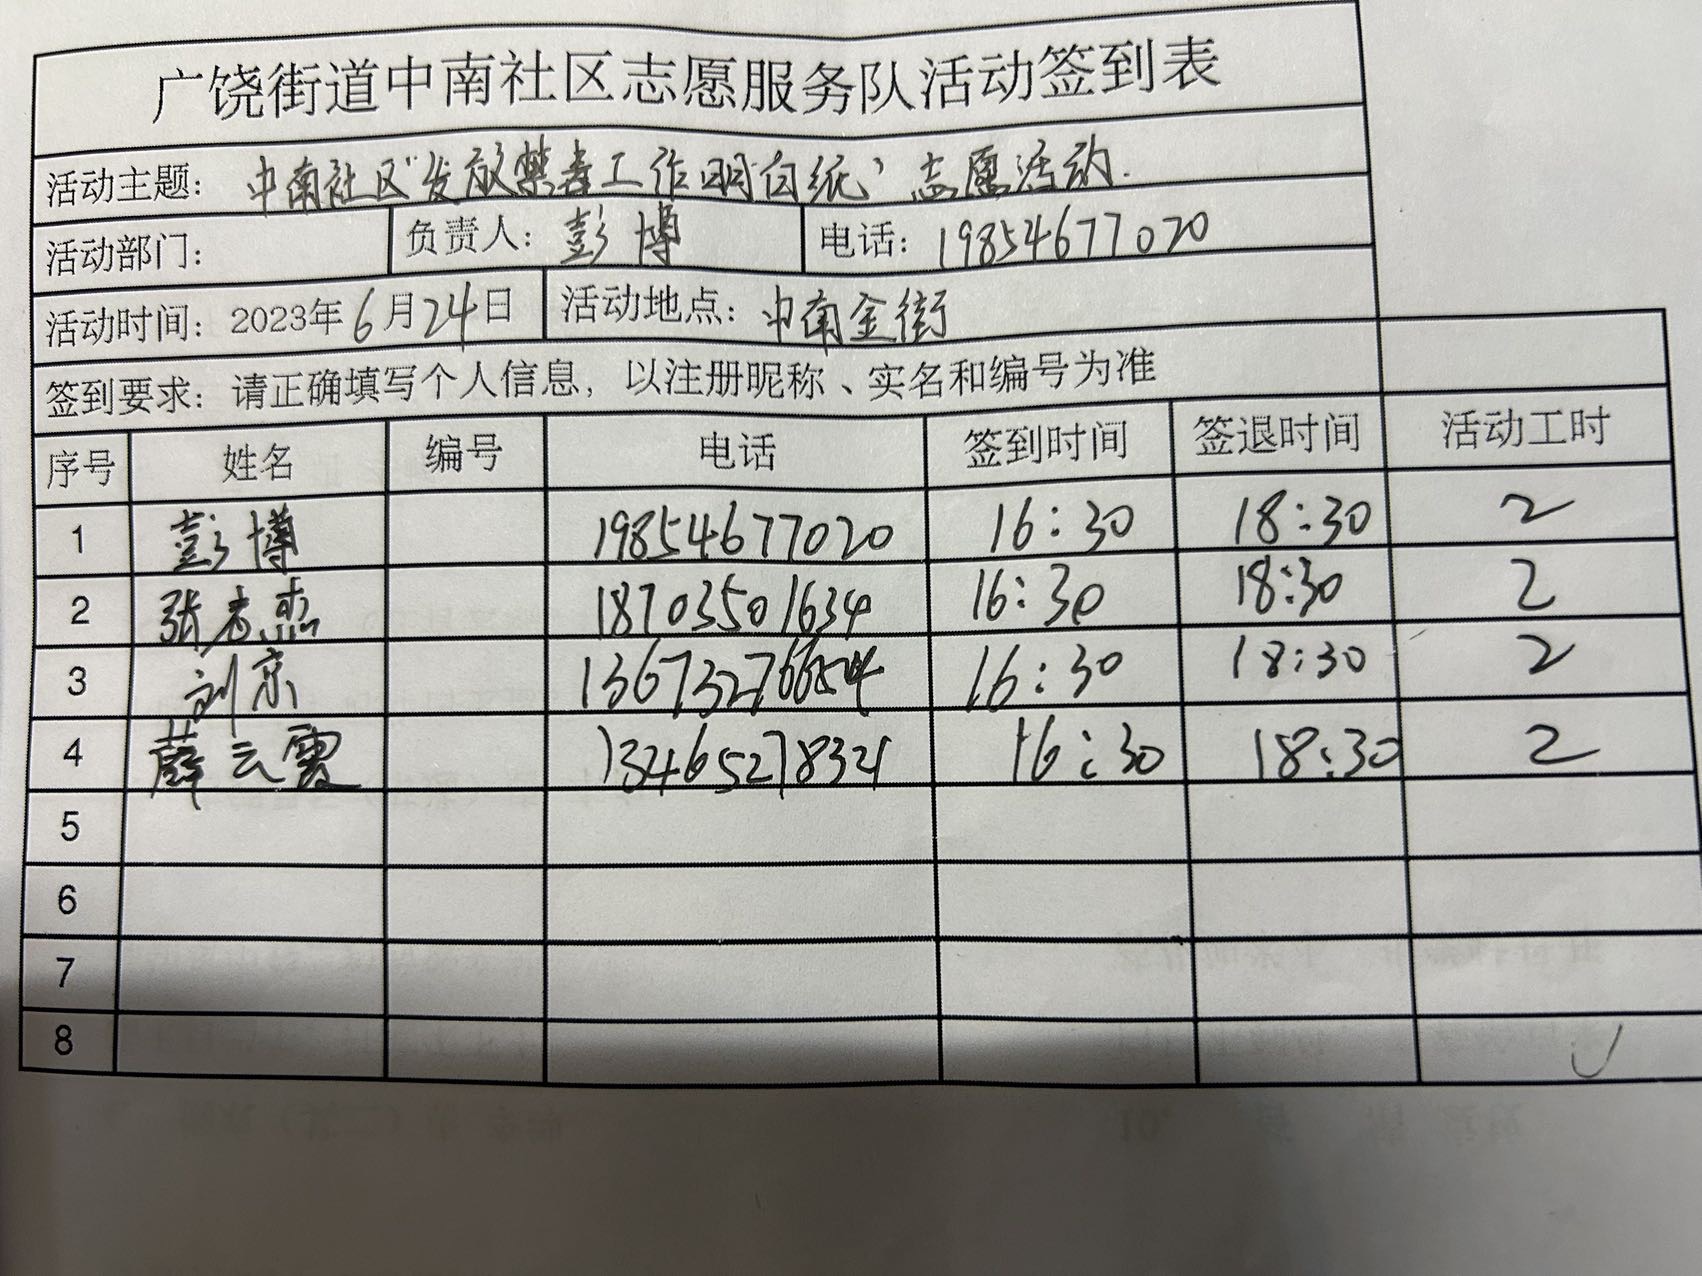 广饶街道中南社区志愿服务队活动签到表
活动主题：中南社区“发放禁毒工作明白纸”志愿活动.
活动部门： 负责人：彭博 电话：19854677020
活动时间：2023年6月24日 活动地点：中南金街
签到要求：请正确填写个人信息，以注册昵称、实名和编号为准
序号 姓名 编号 电话 签到时间 签退时间 活动工时
1 彭博 19854677020 16:30 18:30 2
2 张志杰 18703501634 16:30 18:30 2
3 刘京 16:30 18:30 2
4 薛云霞 13465278321 16:30 18:30 2
5
6
7
8